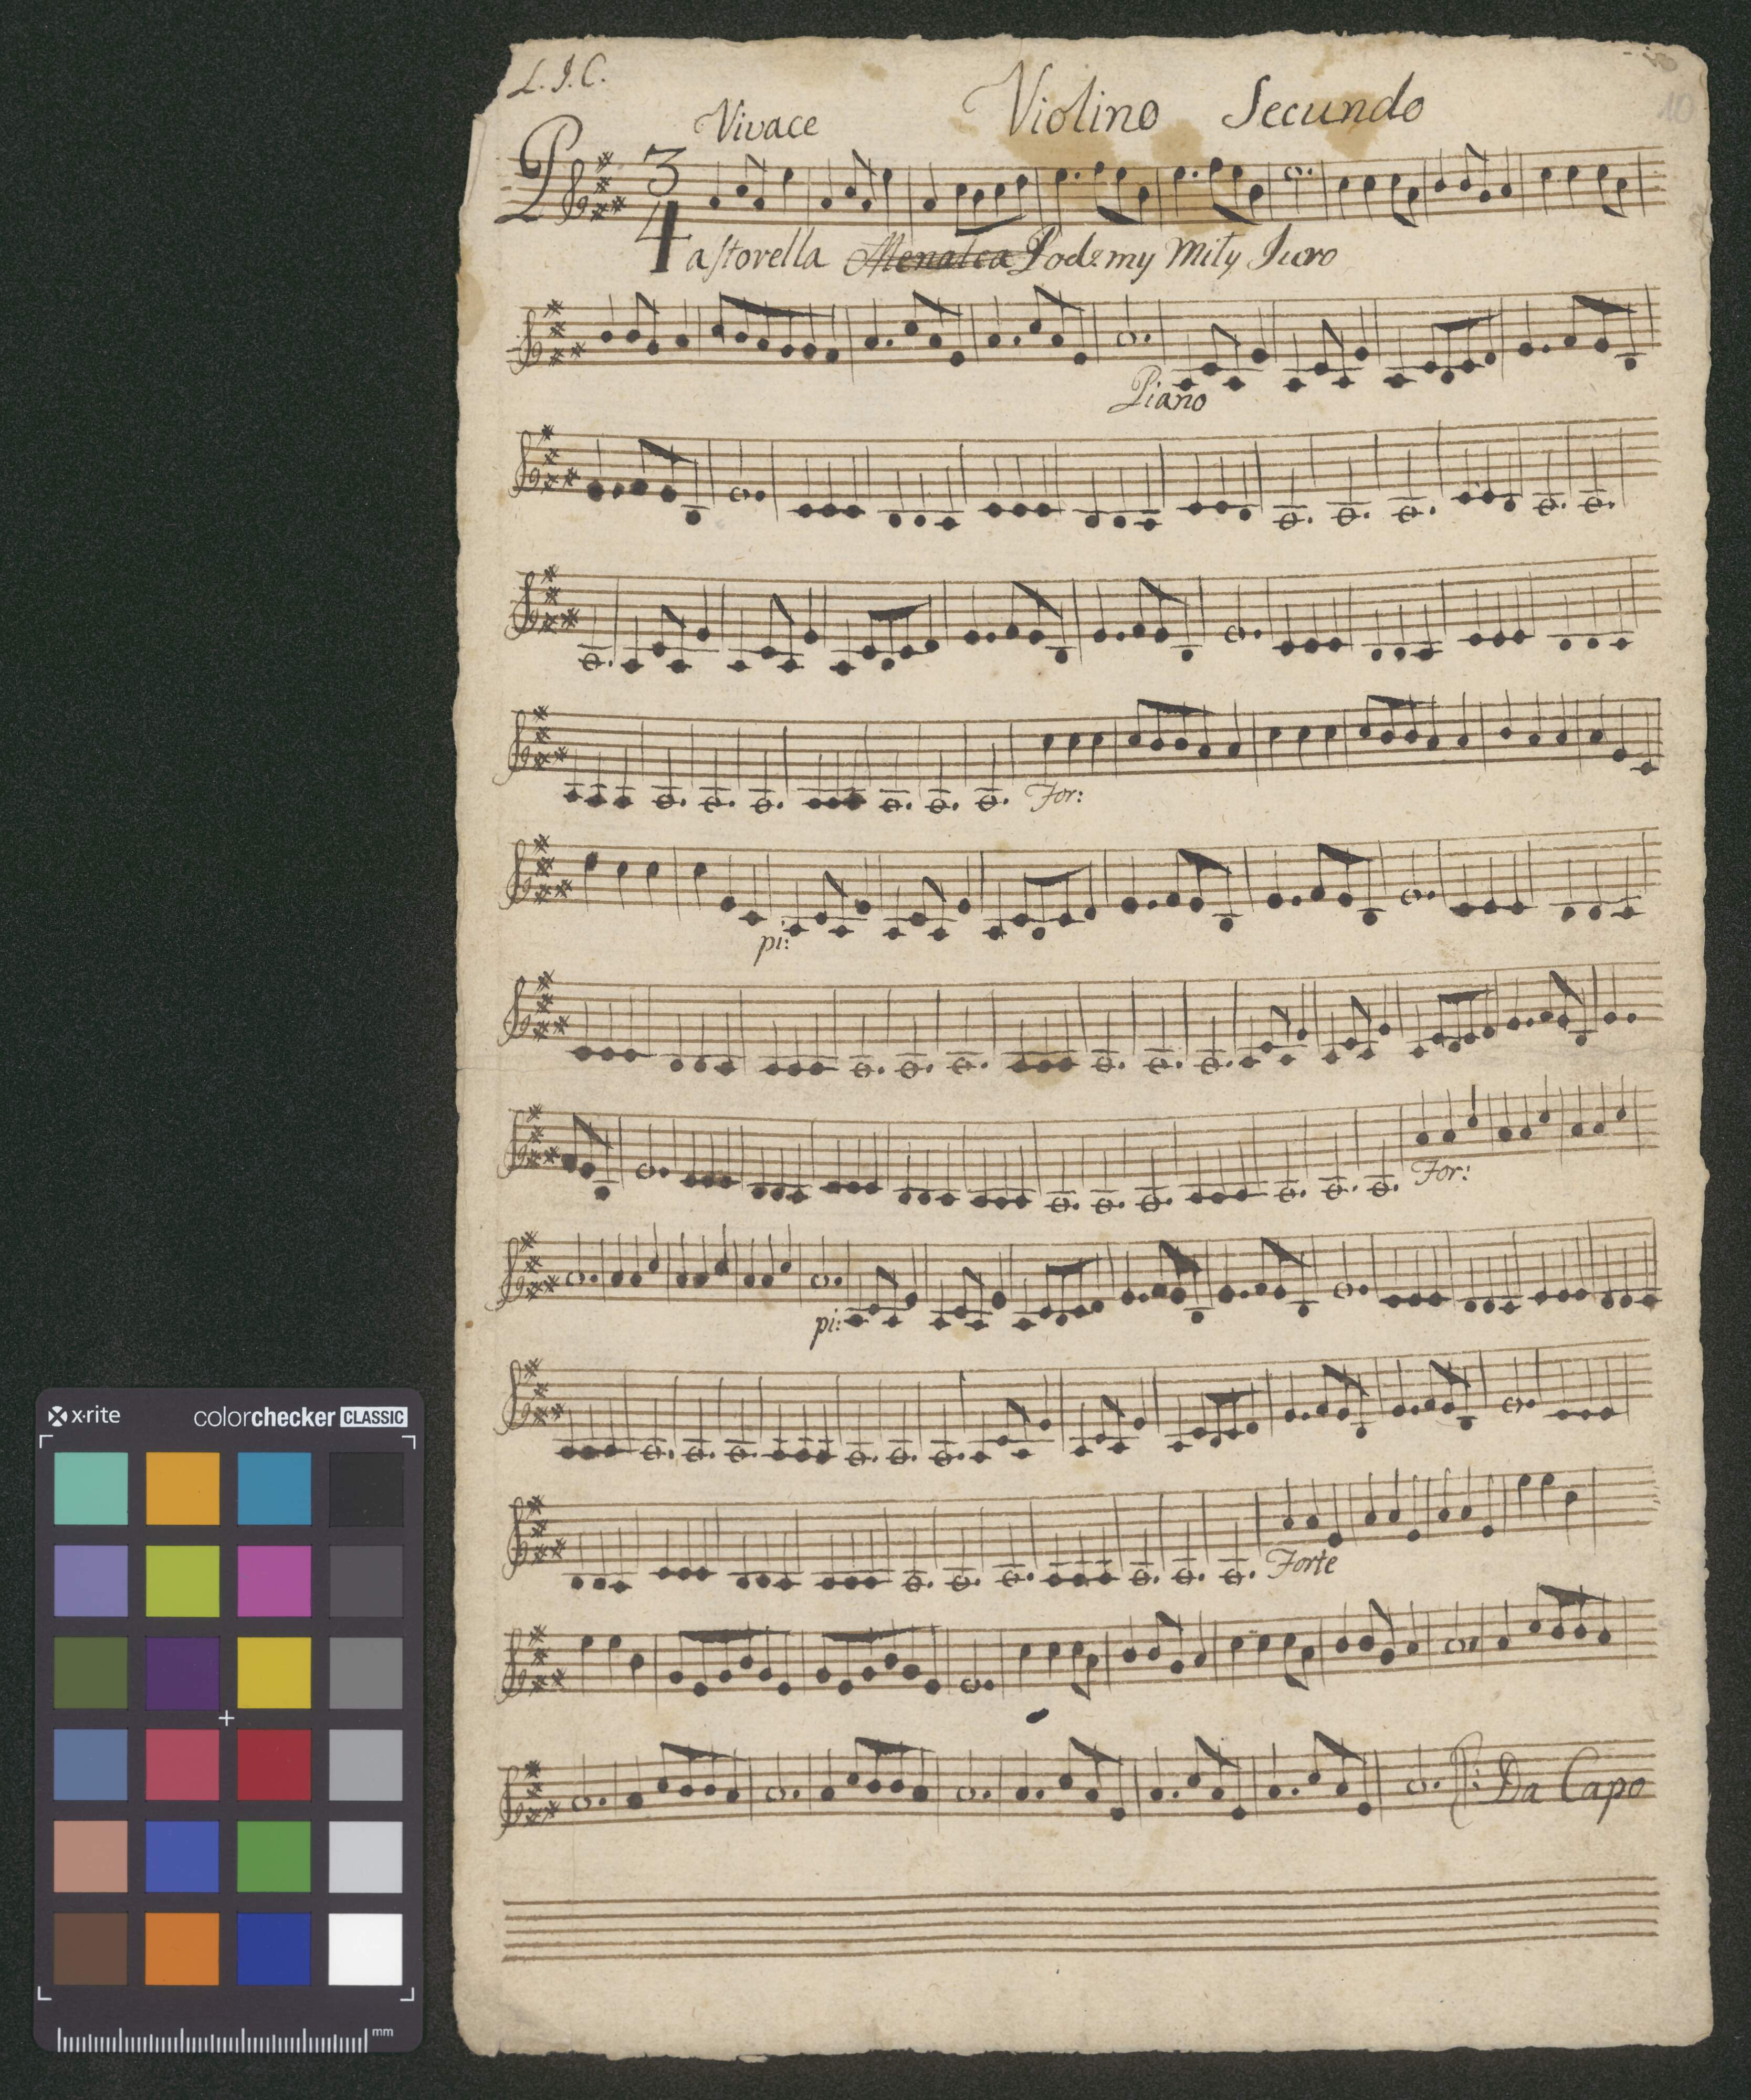 L. J. C.
Vivace Violino Secundo
10
3
4
Pastorella Menalca Podzmy Mily Juro
Piano
For:
pi:
For:
pi:
Forte
Da Capo
x-rite colorchecker CLASSIC
mm